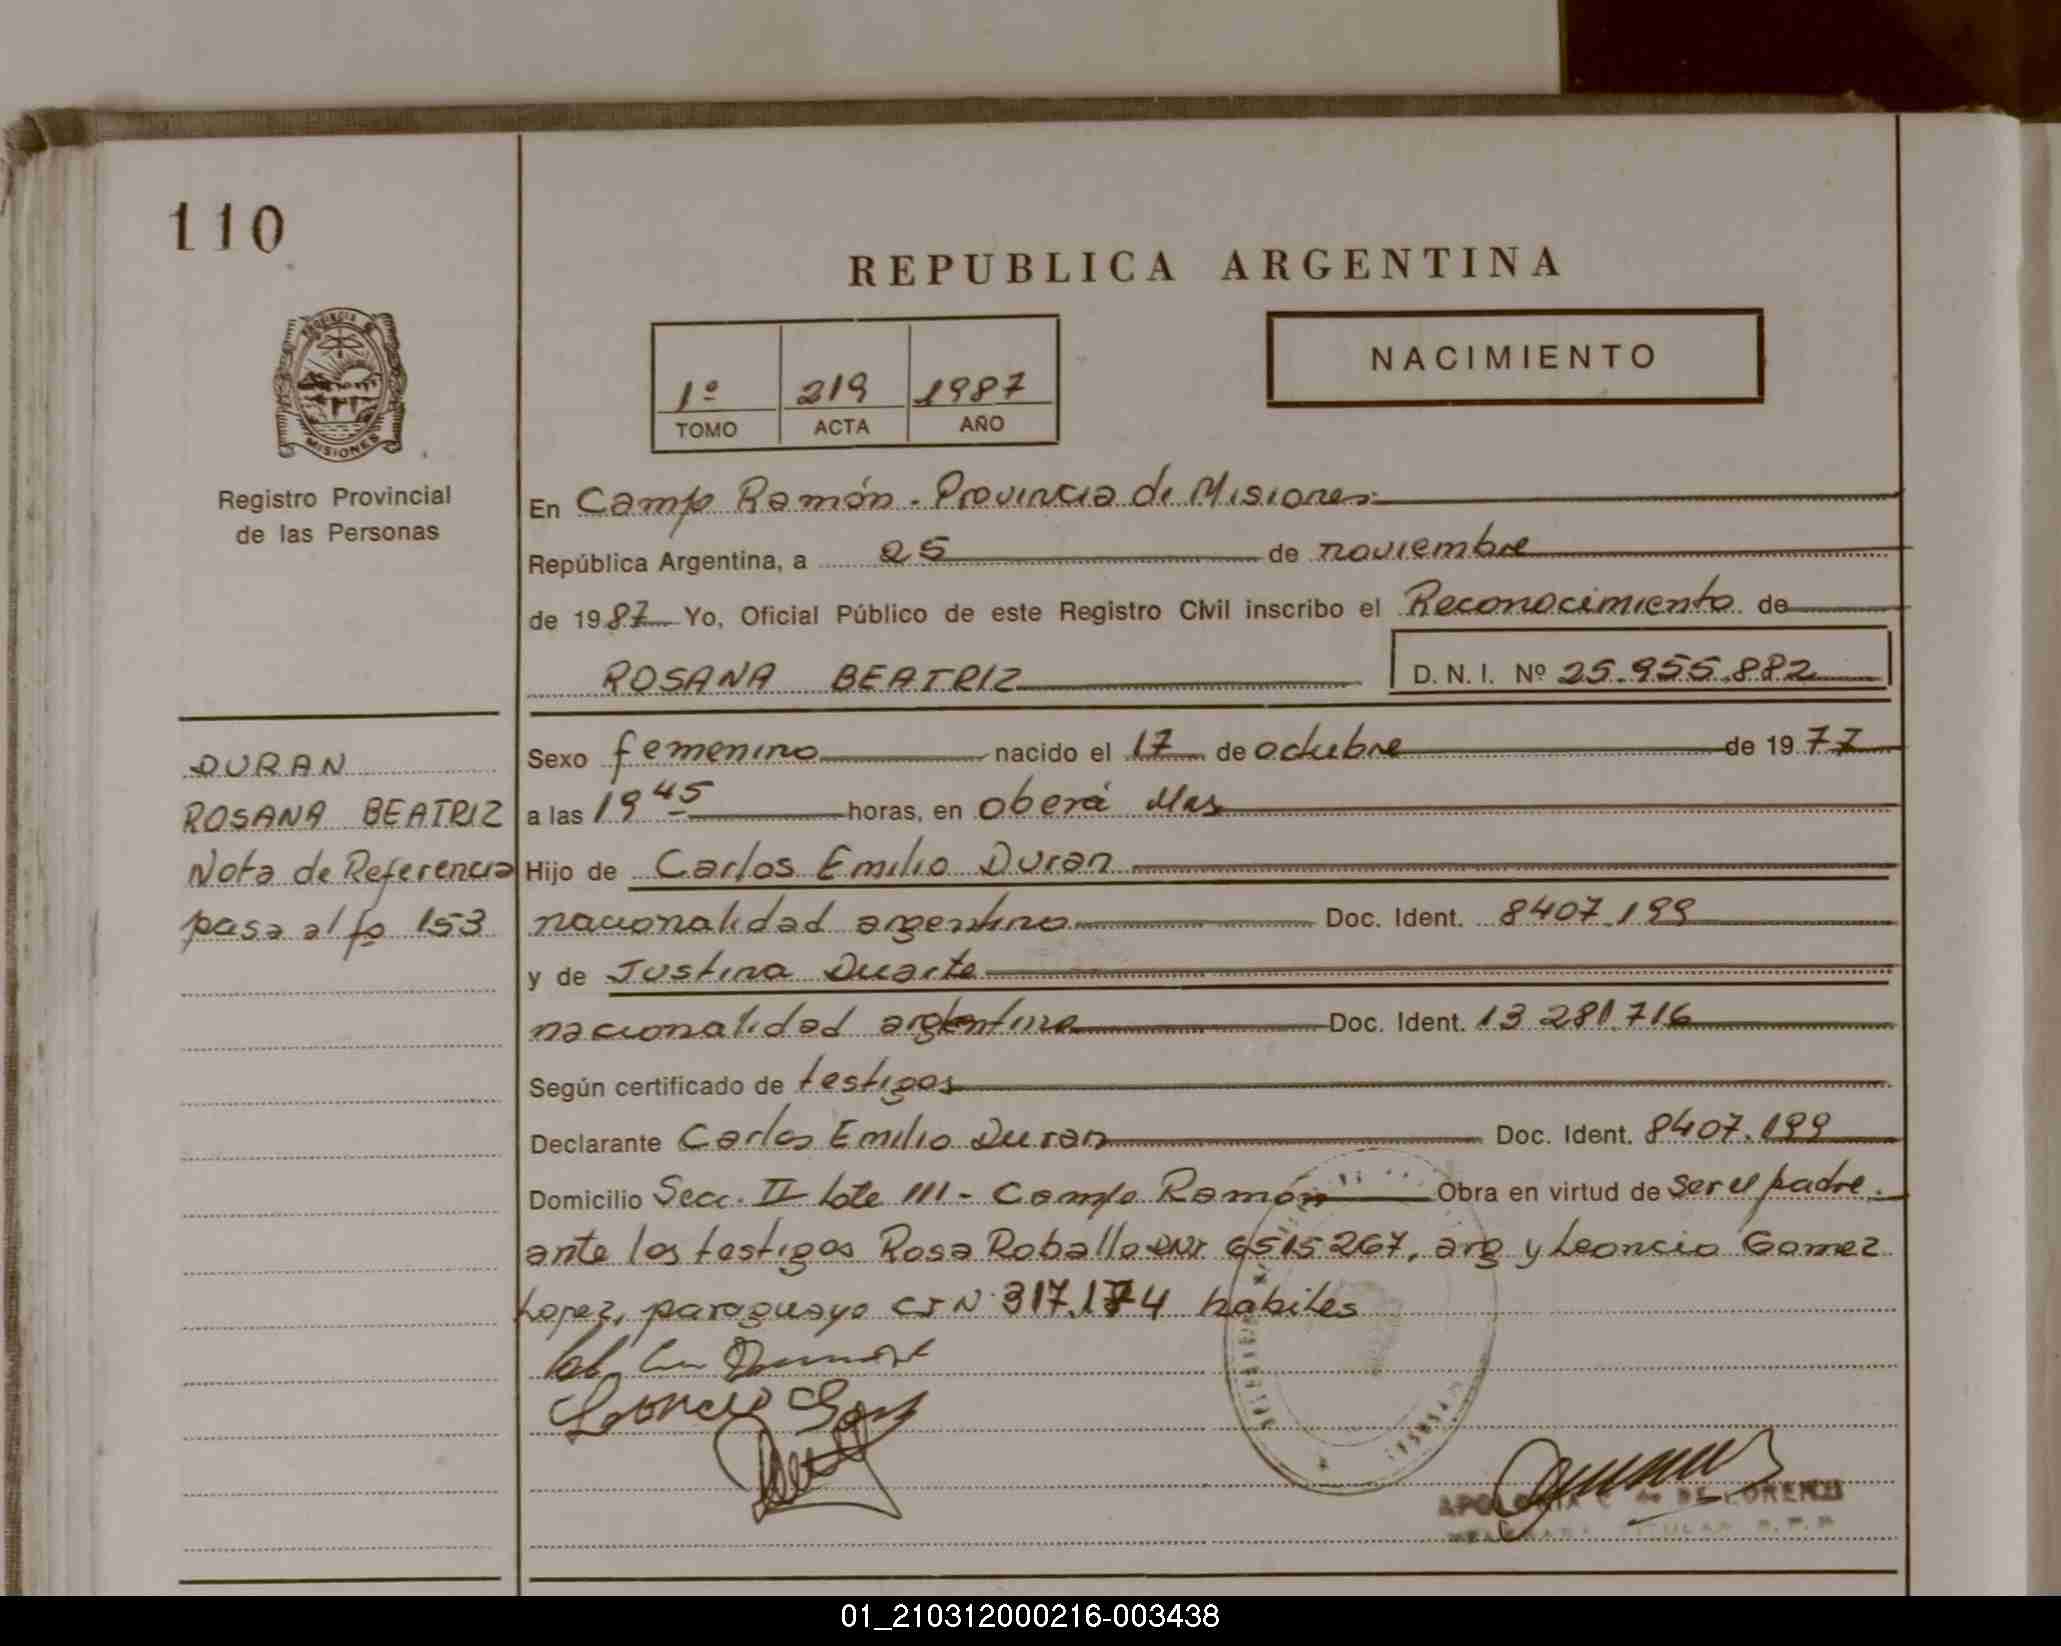 110
REPUBLICA ARGENTINA
NACIMIENTO
1º 219 1987
TOMO ACTA AÑO
PROVINCIA DE
MISIONES
Registro Provincial
de las Personas
En Campo Ramón - Provincia de Misiones
República Argentina, a 25 de noviembre
de 1987 Yo, Oficial Público de este Registro Civil inscribo el Reconocimiento de
ROSANA BEATRIZ D. N. I. Nº 25.955.882
DURAN
ROSANA BEATRIZ
Nota de Referencia
pasa al fo 153
Sexo femenino nacido el 17 de octubre de 1977
a las 19 45 horas, en Oberá Mns
Hijo de Carlos Emilio Duran
nacionalidad argentino Doc. Ident. 8407.199
y de Justina Duarte
nacionalidad argentina Doc. Ident. 13 281.716
Según certificado de testigos
Declarante Carlos Emilio Duran Doc. Ident. 8407.199
Domicilio Secc. II Lote 111 - Campo Ramón Obra en virtud de ser el padre.
ante los testigos Rosa Roballo DNI 6515267, arg y Leoncio Gomez
Lopez, paraguayo CI N 317.174 habiles
Leoncio Gomez
APOLONIA C de DE LORENZI
TITULAR R. P. P
01_210312000216-003438